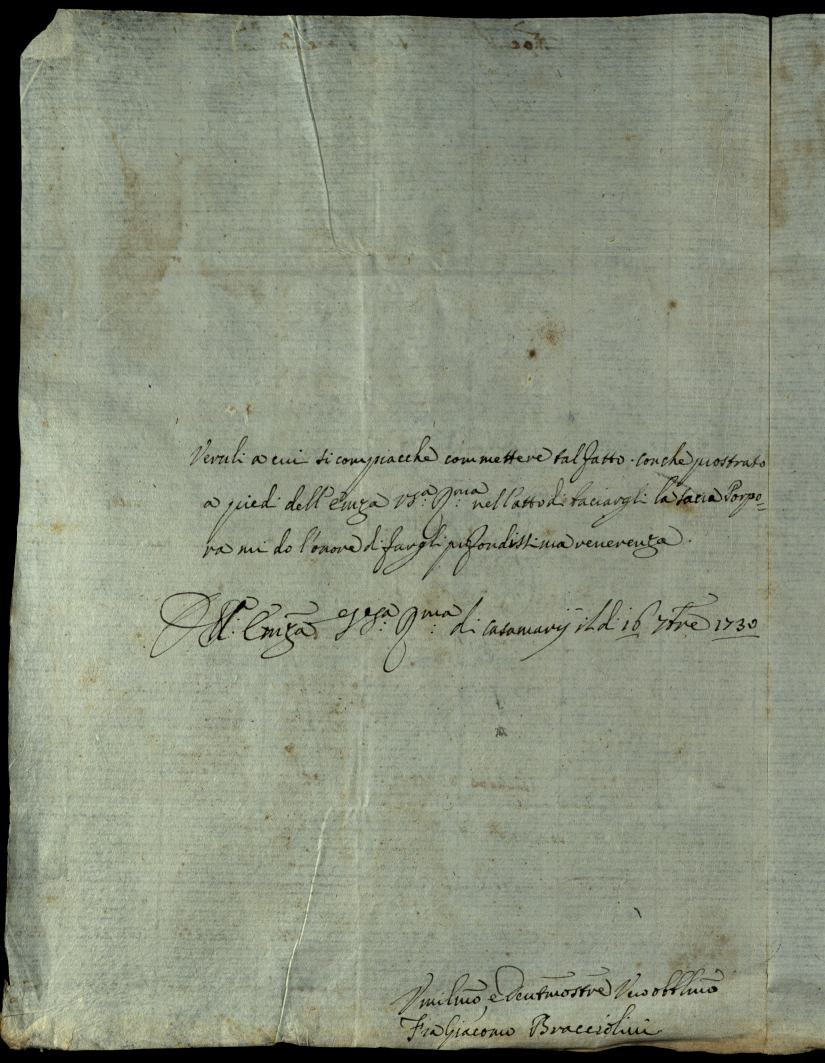 Veruli a cui si compiacche commettere tal fatto. con che prostrato
a piedi dell'Emza Vsa. Rma. nell'atto di baciargli la sacra Porpo=
ra mi do l'onore di fargli profondissima reverenza.
Dell'Emza Vsa. Rma. di casamarij il di 16 7bre 1730
Umilmo e Devotmo Servo obblmo
Fra Giacomo Bracciolini